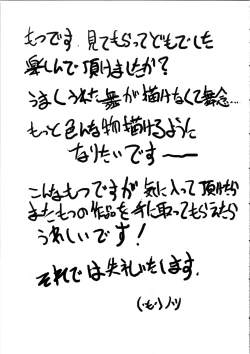 もつです。見てもらってどもでした
楽しんで頂けましたか?
うまくうれた舞が描けなくて無念…
もっと色んな物描けるように
なりたいです――
こんなもつですが気に入って頂けたら
またもつの作品を手に取ってもらえたら
うれしいです!
それでは失礼いたします。